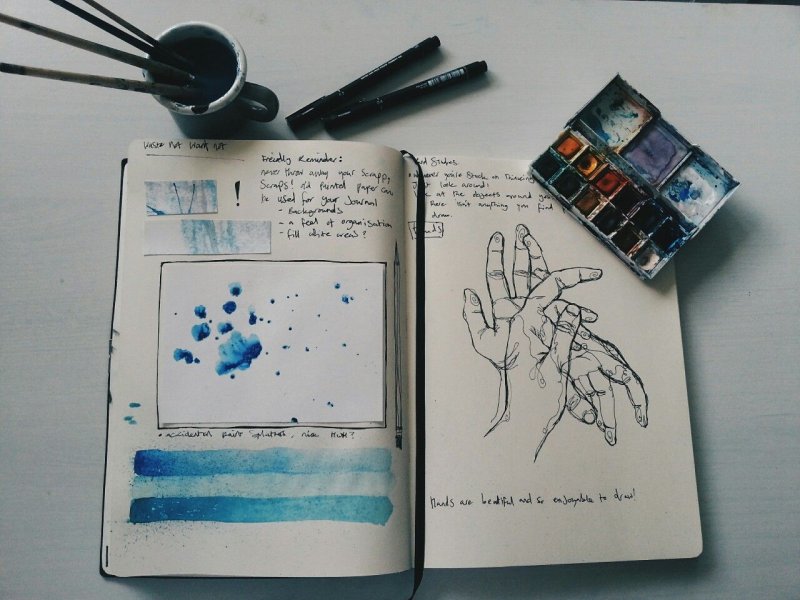 Waste Not Want Not
Friendly Reminder:
never throw away your scrapp,
Scraps! old Painted Paper can
be used for your Journal
- Backgrounds
- a feel of organisation
- fill white areas?
!
• accidental Paint Splatters, nice HUH?
Studies.
you're Stuck on Thinking
Just look around!
at the objects around you
there isn't anything you find
draw.
Hands
Hands are beautiful and so enjoyable to draw!